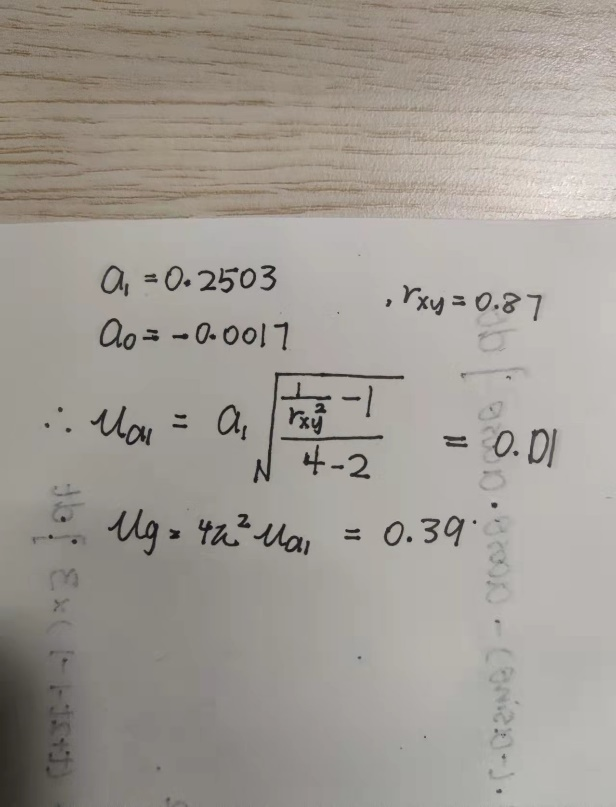 a₁ = 0.2503
, rxy = 0.87
a₀ = -0.0017
∴ ua₁ = a₁ √((1/rxy² - 1)/(4-2)) = 0.01
ug = 4π² ua₁ = 0.39